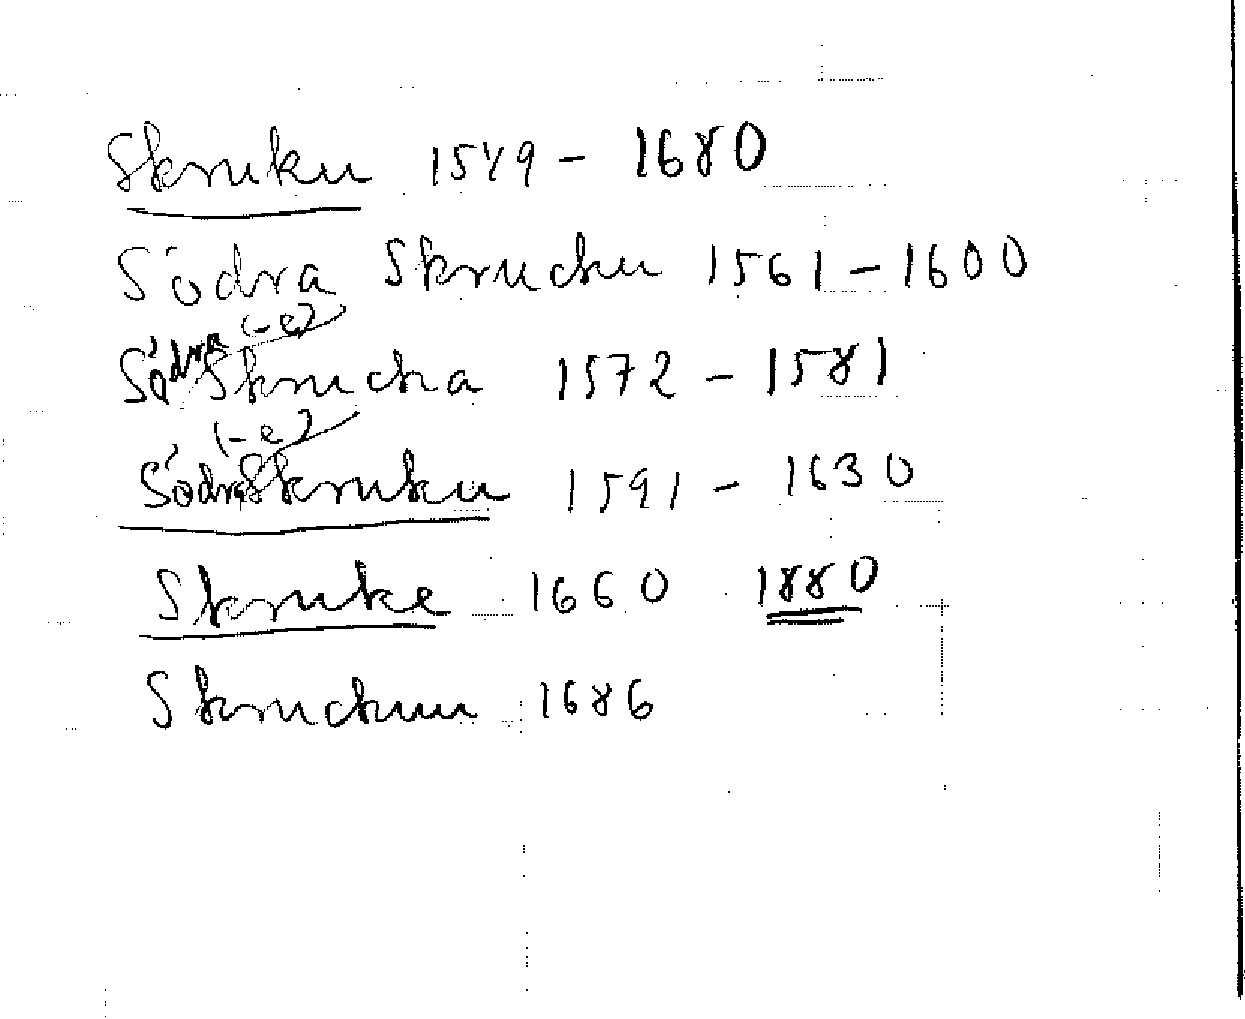 Skruku 1549 - 1680
Södra Skruchu 1561 - 1600
(-e)
Södra Skrucha 1572 - 1581
(-e)
Södra Skruku 1591 - 1630
Skruke 1660 1880
Skruchuu 1686